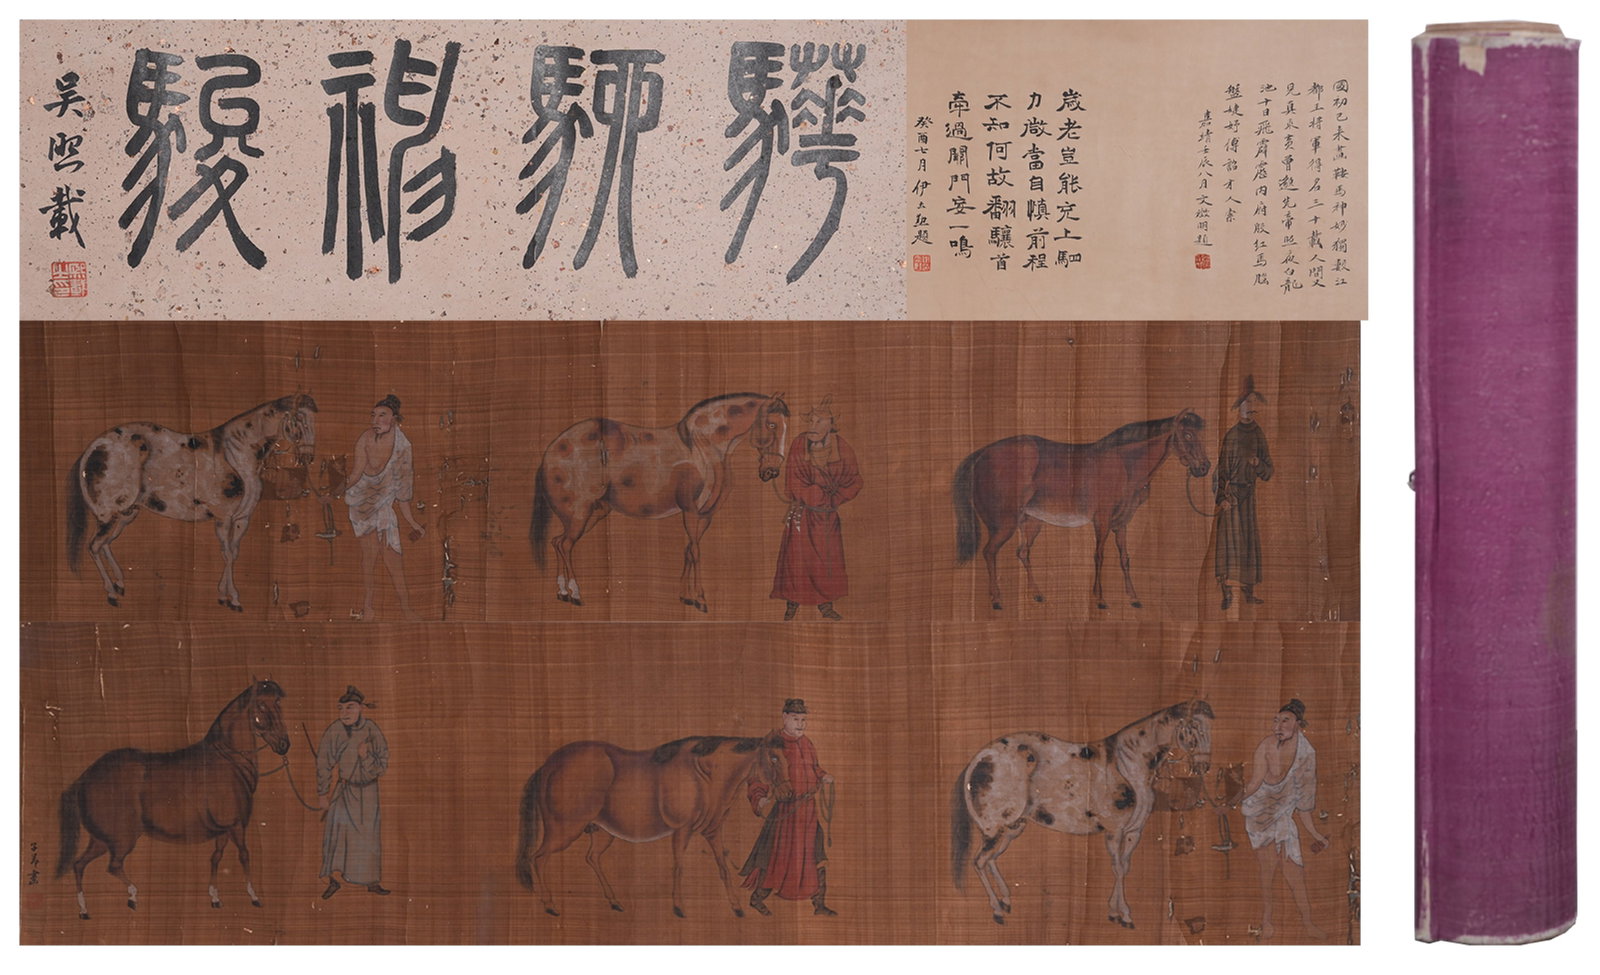 驊駵神駿
吳熙載
熙載之印
國初已來畫鞍馬神妙獨數江
都王將軍得名三十載人間又
見真乘黃曾貌先帝照夜白龍
池十日飛霹靂內府殷紅馬腦
盤婕妤傳詔才人索
嘉靖壬辰八月文徵明題
歲老豈能充上駟
力微當自慎前程
不知何故翻驤首
牽過關門妄一鳴
癸酉七月伊立勳題
子昂畫